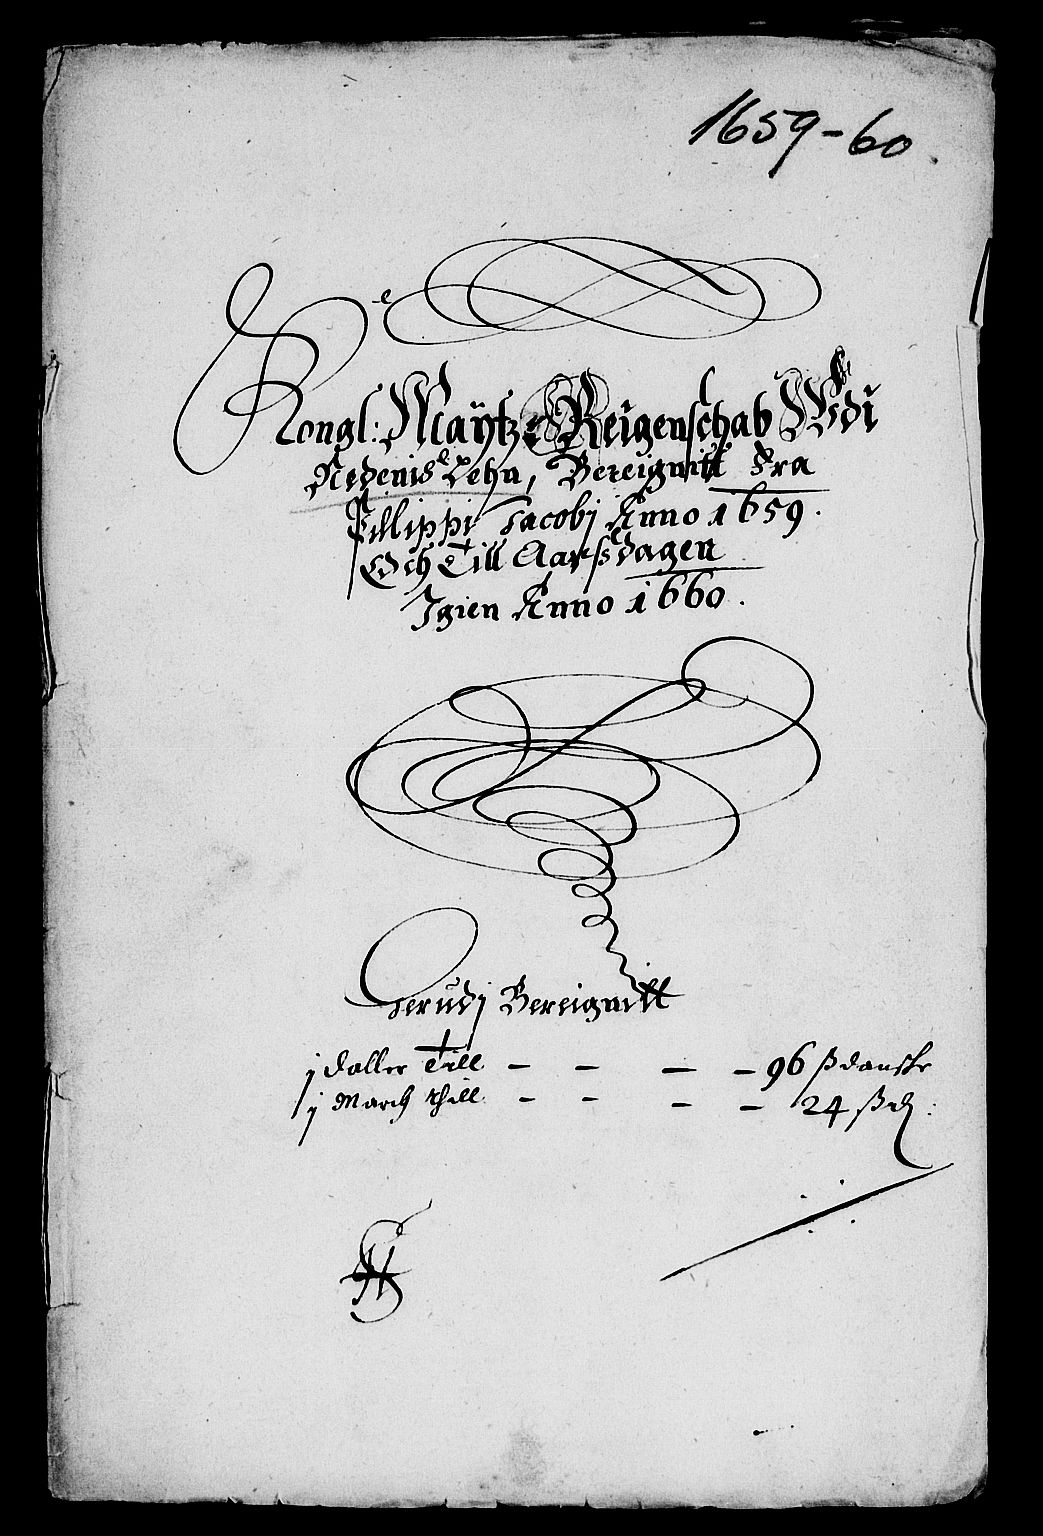 1659-60.
Kongl: Maÿtz Reigenschab Vdi
Nedenis Lehn, Bereignitt Fra
Pillippi Jacobj Anno 1659.
Och Till Aarsdagen
Igien Anno 1660.
Herudj Bereignitt
j daller Till – – – – 96 ß danske
j March thill – – – – 24 ß d: